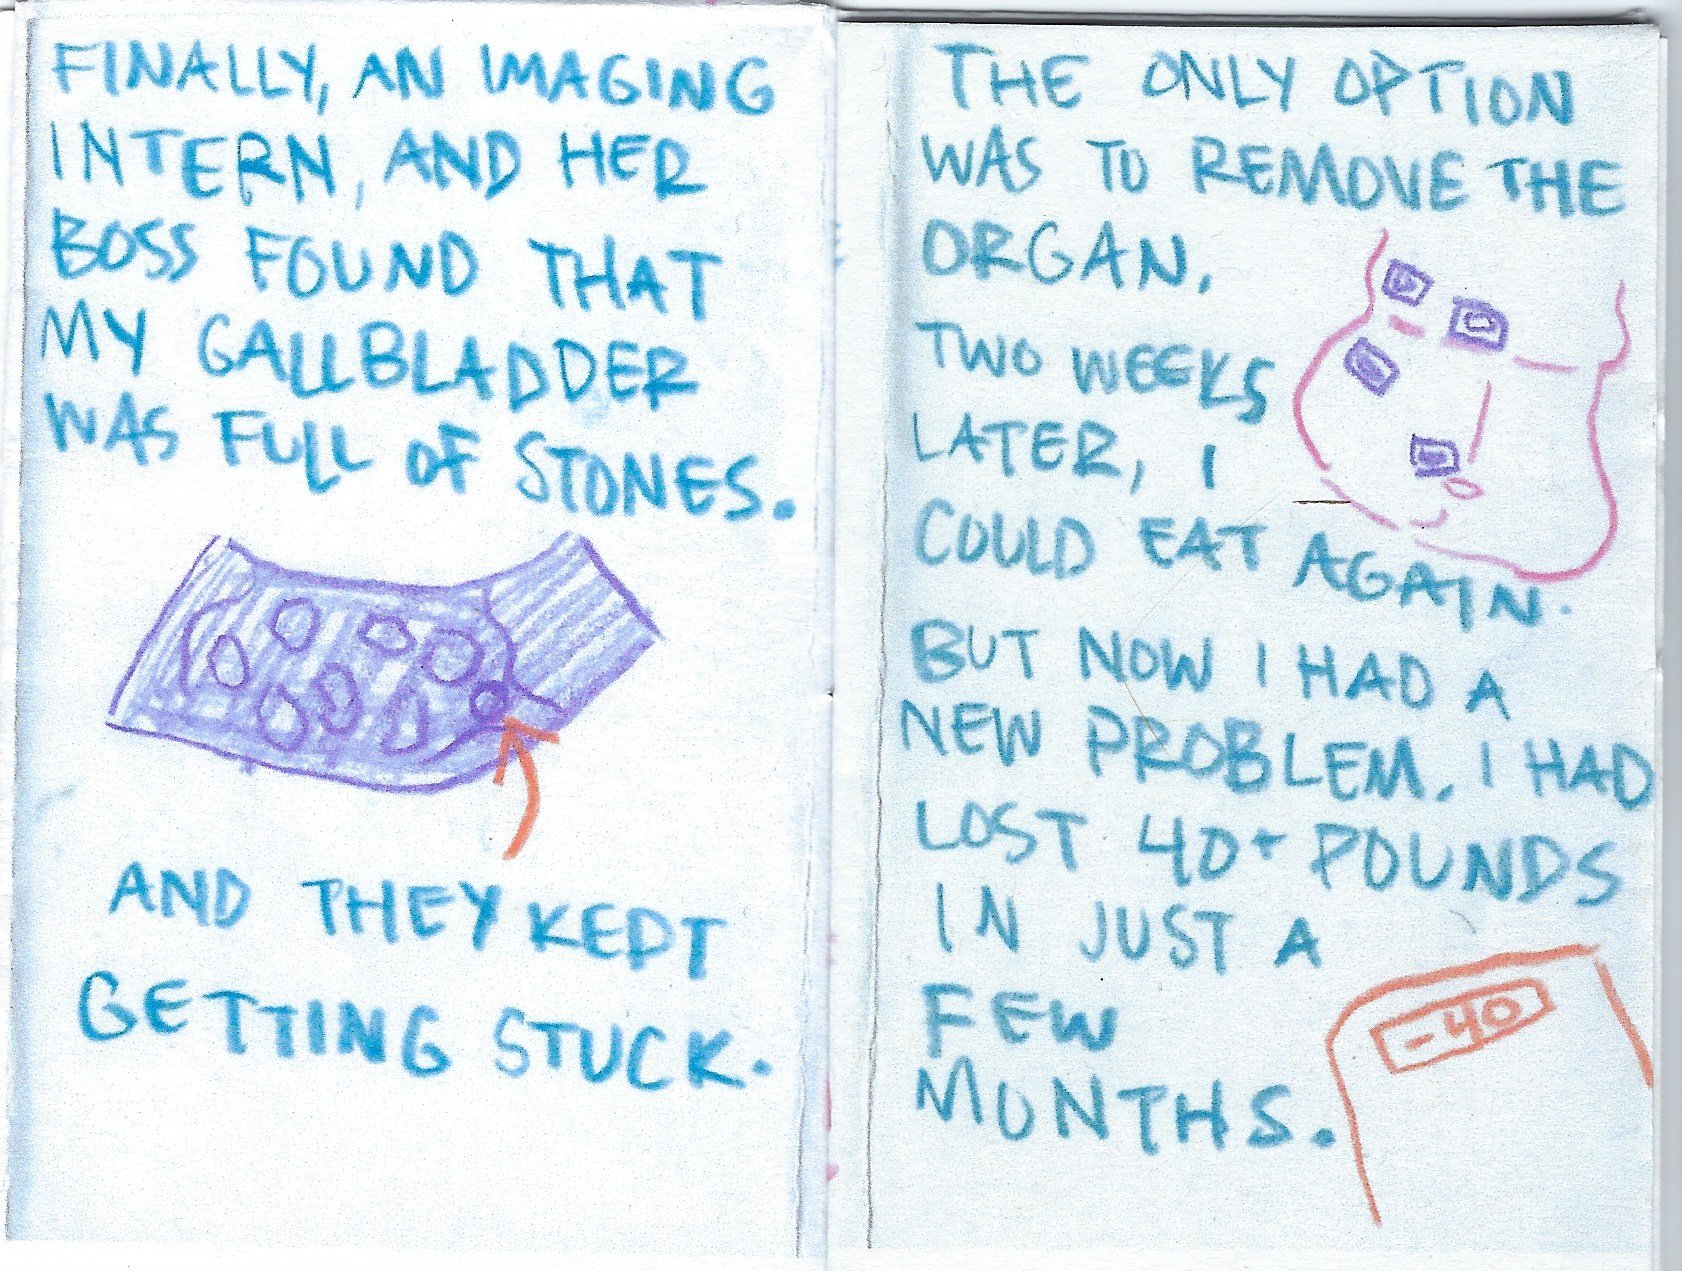 FINALLY, AN IMAGING
INTERN, AND HER
BOSS FOUND THAT
MY GALLBLADDER
WAS FULL OF STONES.
AND THEY KEPT
GETTING STUCK.
THE ONLY OPTION
WAS TO REMOVE THE
ORGAN.
TWO WEEKS
LATER, I
COULD EAT AGAIN.
BUT NOW I HAD A
NEW PROBLEM. I HAD
LOST 40+ POUNDS
IN JUST A
FEW
MONTHS.
-40